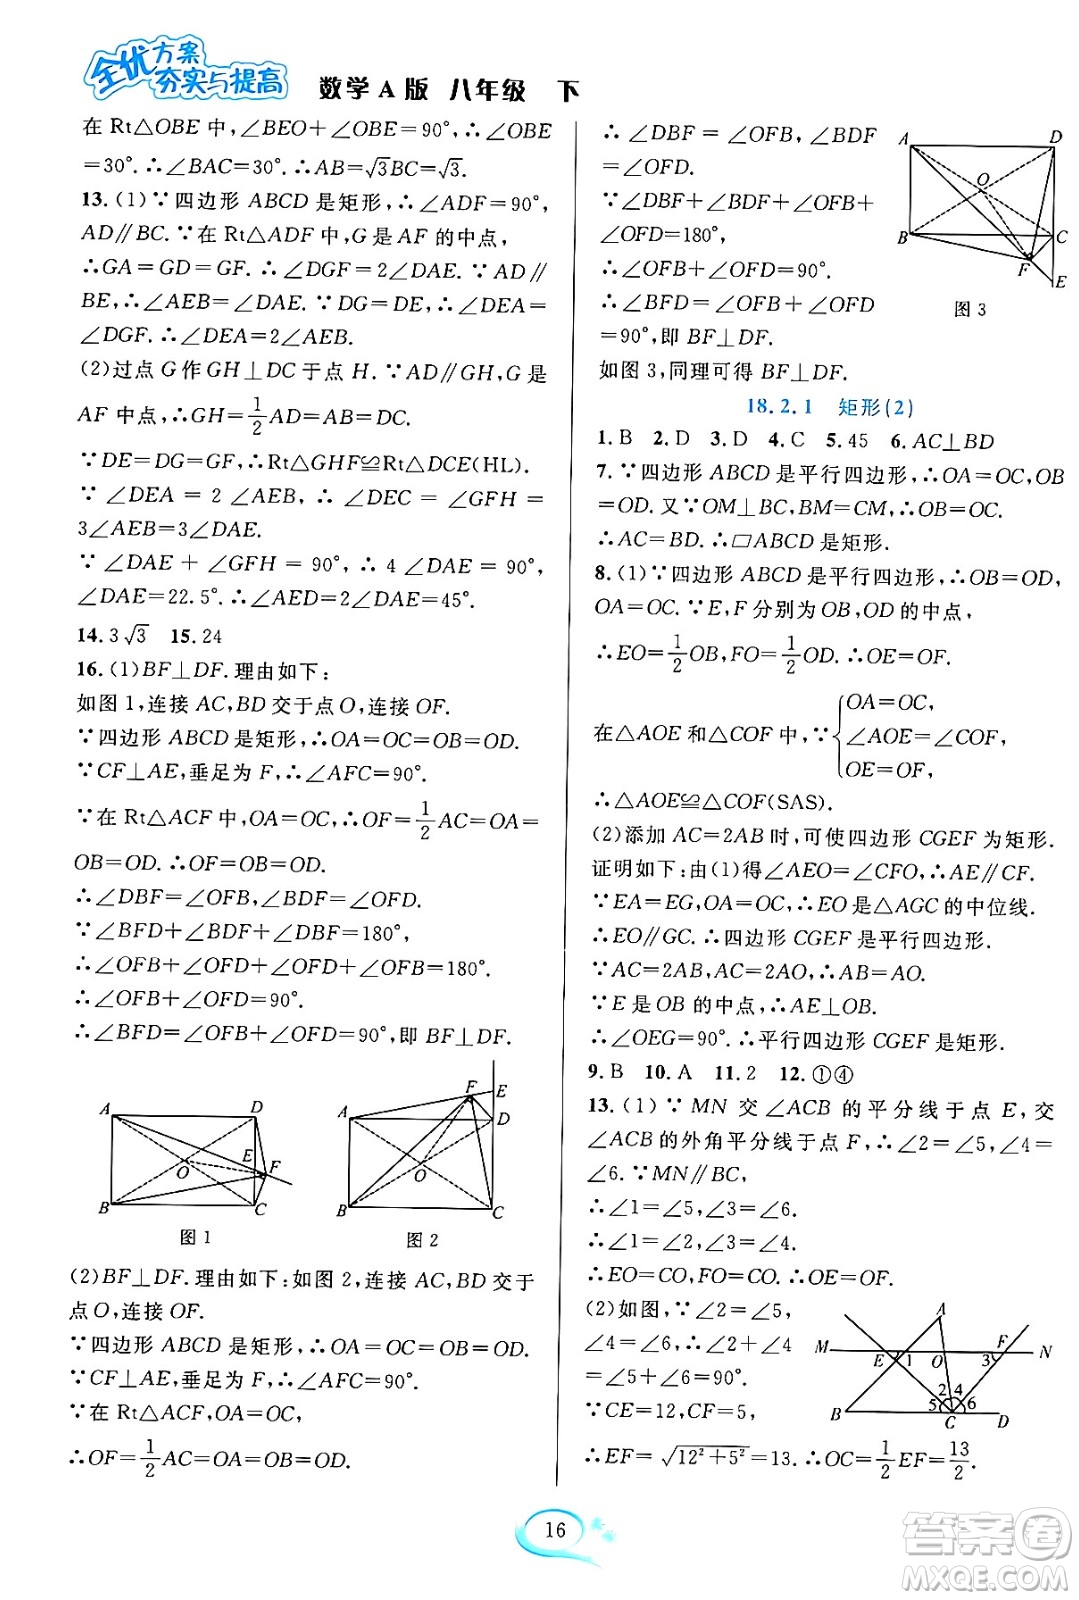 全优方案
夯实与提高
数学A版 八年级 下
在 Rt△OBE 中,∠BEO+∠OBE=90°,∴∠OBE
=30°.∴∠BAC=30°.∴AB=√3BC=√3.
13.(1)∵四边形 ABCD 是矩形,∴∠ADF=90°,
AD∥BC.∵在 Rt△ADF 中,G 是 AF 的中点,
∴GA=GD=GF.∴∠DGF=2∠DAE.∵AD∥
BE,∴∠AEB=∠DAE.∵DG=DE,∴∠DEA=
∠DGF.∴∠DEA=2∠AEB.
(2)过点 G 作 GH⊥DC 于点 H.∵AD∥GH,G 是
AF 中点,∴GH=1/2AD=AB=DC.
∵DE=DG=GF,∴Rt△GHF≌Rt△DCE(HL).
∵∠DEA=2∠AEB,∴∠DEA=2∠GFH=
3∠AEB=3∠DAE.
∵∠DAE+∠GFH=90°,∴4∠DAE=90°,
∠DAE=22.5°.∴∠AED=2∠DAE=45°.
14.3√3 15.24
16.(1)BF⊥DF.理由如下:
如图 1,连接 AC,BD 交于点 O,连接 OF.
∵四边形 ABCD 是矩形,∴OA=OC=OB=OD.
∵CF⊥AE,垂足为 F,∴∠AFC=90°.
∵在 Rt△ACF 中,OA=OC,∴OF=1/2AC=OA=
OB=OD.∴OF=OB=OD.
∴∠DBF=∠OFB,∠BDF=∠OFD.
∵∠DBF+∠BDF+∠DBF=180°,
∴∠OFB+∠OFD+∠OFB+∠OFD=180°.
∴∠OFB+∠OFD=90°.
∴∠BFD=∠OFB+∠OFD=90°,即 BF⊥DF.
A D E F O B C
图 1
A F E D O B C
图 2
(2)BF⊥DF.理由如下:如图 2,连接 AC,BD 交于
点 O,连接 OF.
∵四边形 ABCD 是矩形,∴OA=OC=OB=OD.
∵CF⊥AE,垂足为 F,∴∠AFC=90°.
∵在 Rt△ACF,OA=OC,
∴OF=1/2AC=OA=OC=OB=OD.
∴∠DBF=∠OFB,∠BDF
=∠OFD.
∵∠DBF+∠BDF+∠OFB+
∠OFD=180°,
∴∠OFB+∠OFD=90°.
∴∠BFD=∠OFB+∠OFD
=90°,即 BF⊥DF.
A D O B C F E
图 3
如图 3,同理可得 BF⊥DF.
18.2.1 矩形(2)
1.B 2.D 3.D 4.C 5.45 6.AC⊥BD
7.∵四边形 ABCD 是平行四边形,∴OA=OC,OB
=OD.又∵OM⊥BC,BM=CM,∴OB=OC.
∴AC=BD.∴▱ABCD 是矩形.
8.(1)∵四边形 ABCD 是平行四边形,∴OB=OD,
OA=OC.∵E,F 分别为 OB,OD 的中点,
∴EO=1/2OB,FO=1/2OD.∴OE=OF.
在△AOE 和△COF 中,∵{OA=OC,
∠AOE=∠COF,
OE=OF,
∴△AOE≌△COF(SAS).
(2)添加 AC=2AB 时,可使四边形 CGEF 为矩形.
证明如下:由(1)得∠AEO=∠CFO,∴AE∥CF.
∵EA=EG,OA=OC,∴EO 是△AGC 的中位线.
∴EO∥GC.∴四边形 CGEF 是平行四边形.
∵AC=2AB,AC=2AO,∴AB=AO.
∵E 是 OB 的中点,∴AE⊥OB.
∴∠OEG=90°.∴平行四边形 CGEF 是矩形.
9.B 10.A 11.2 12.①④
13.(1)∵MN 交∠ACB 的平分线于点 E,交
∠ACB 的外角平分线于点 F,∴∠2=∠5,∠4=
∠6.∵MN∥BC,
∴∠1=∠5,∠3=∠6.
∴∠1=∠2,∠3=∠4.
∴EO=CO,FO=CO.∴OE=OF.
(2)如图,∵∠2=∠5,
∠4=∠6,∴∠2+∠4=
∠5+∠6=90°.
∵CE=12,CF=5,
M A F N E 1 O 3 2 4 5 6 B C D
∴EF=√12²+5²=13.∴OC=1/2EF=13/2.
16
答案圈
MXQE.COM